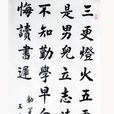 三更燈火五
是男兒立志
不知勤學早
悔讀書遲